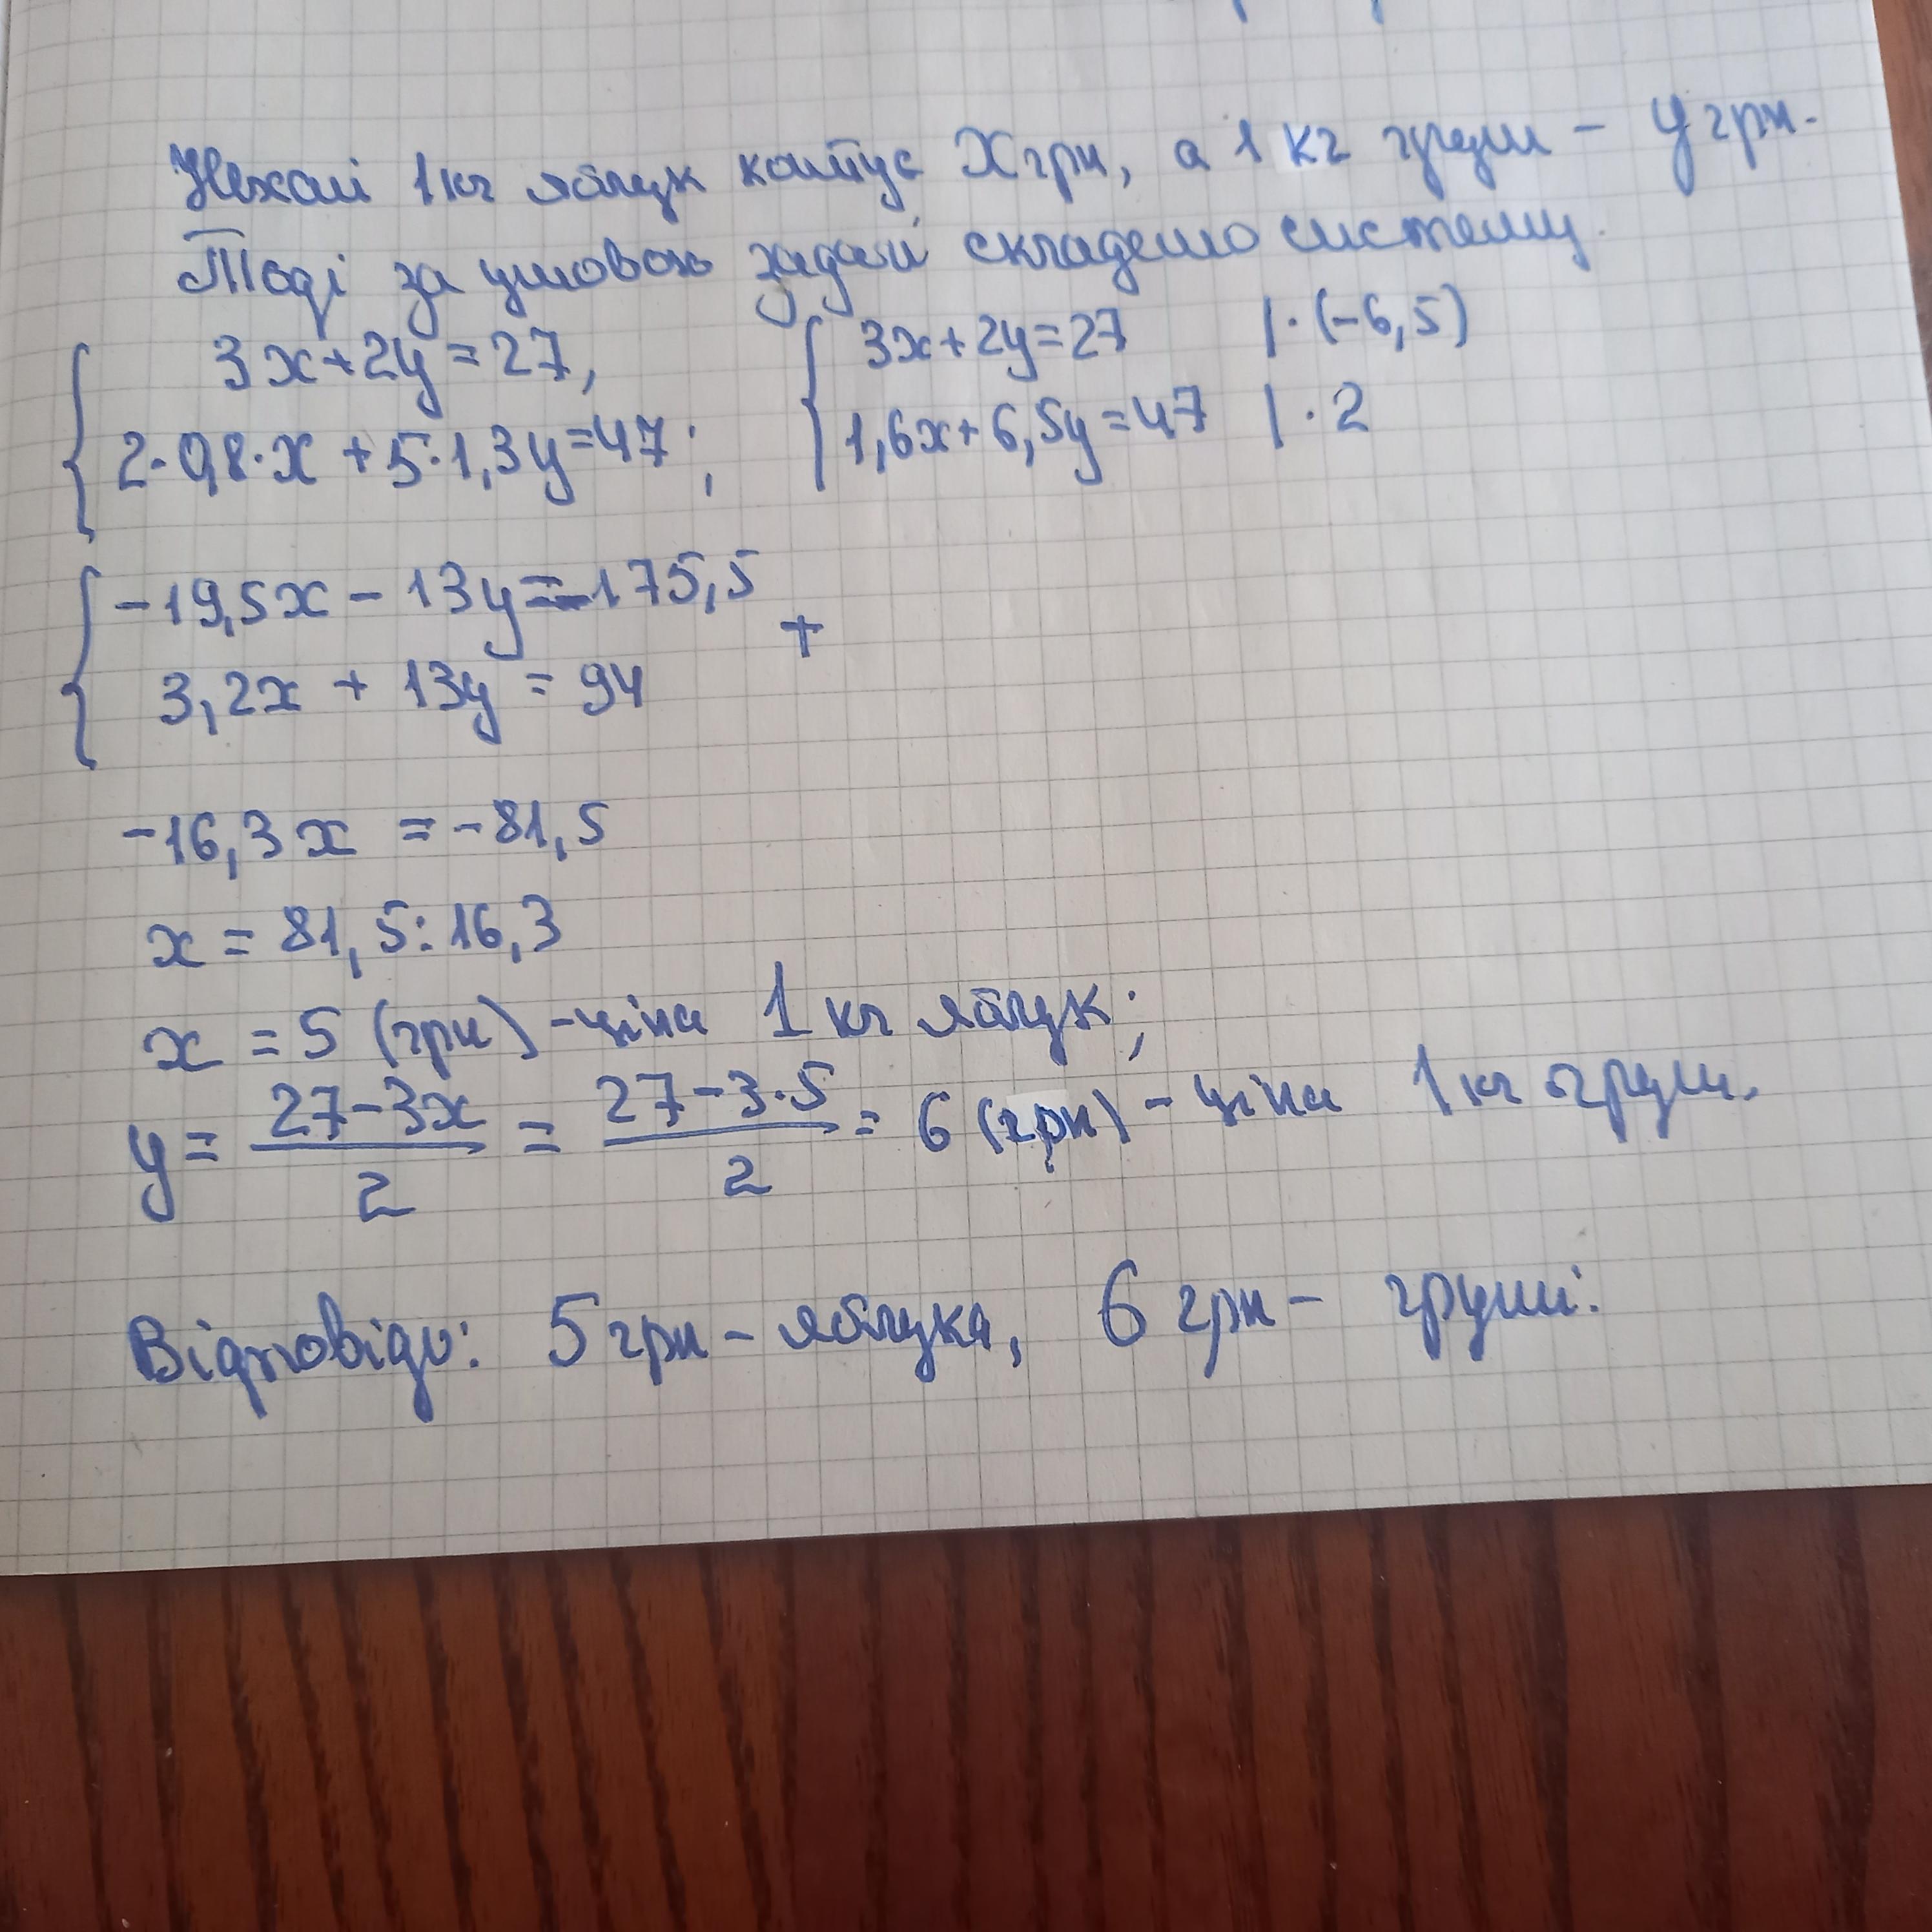 Нехай 1 кг яблук коштує x грн, а 1 кг груш - y грн.
Тоді за умовою задачі складемо систему.
3x+2y=27,
2·0,8·x+5·1,3y=47;
3x+2y=27 |·(-6,5)
1,6x+6,5y=47 |·2
-19,5x-13y=-175,5
+
3,2x+13y=94
-16,3x=-81,5
x=81,5:16,3
x=5 (грн) - ціна 1 кг яблук;
y=(27-3x)/2=(27-3·5)/2=6 (грн) - ціна 1 кг груш.
Відповідь: 5 грн - яблука, 6 грн - груші.